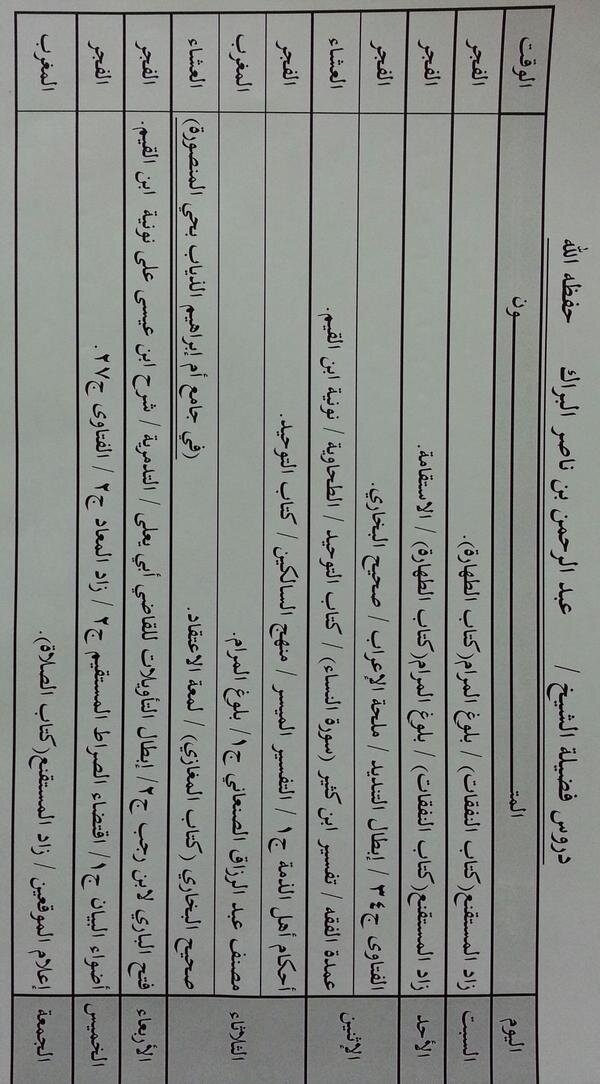 دروس فضيلة الشيخ / عبد الرحمن بن ناصر البراك حفظه الله
اليوم المتـــــــــون الوقت
السبت زاد المستقنع(كتاب النفقات) / بلوغ المرام(كتاب الطهارة). الفجر
الأحد زاد المستقنع(كتاب النفقات) / بلوغ المرام(كتاب الطهارة) / الاستقامة. الفجر
الإثنين الفتاوى ج٣٤ / إبطال التنديد / ملحة الإعراب / صحيح البخاري. الفجر
عمدة الفقه / تفسير ابن كثير (سورة النساء) / كتاب التوحيد / الطحاوية / نونية ابن القيم. العشاء
الثلاثاء أحكام أهل الذمة ج١ / التفسير الميسر / منهج السالكين / كتاب التوحيد. الفجر
مصنف عبد الرزاق الصنعاني ج١ / بلوغ المرام. المغرب
صحيح البخاري (كتاب المغازي) / لمعة الاعتقاد. (في جامع أم إبراهيم الذياب بحي المنصورة) العشاء
الأربعاء فتح الباري لابن رجب ج٢ / إبطال التأويلات للقاضي أبي يعلى / التدمرية / شرح ابن عيسى على نونية ابن القيم. الفجر
الخميس أضواء البيان ج١ / اقتضاء الصراط المستقيم ج٢ / زاد المعاد ج٢ / الفتاوى ج٢٧. الفجر
الجمعة إعلام الموقعين / زاد المستقنع(كتاب الصلاة). المغرب